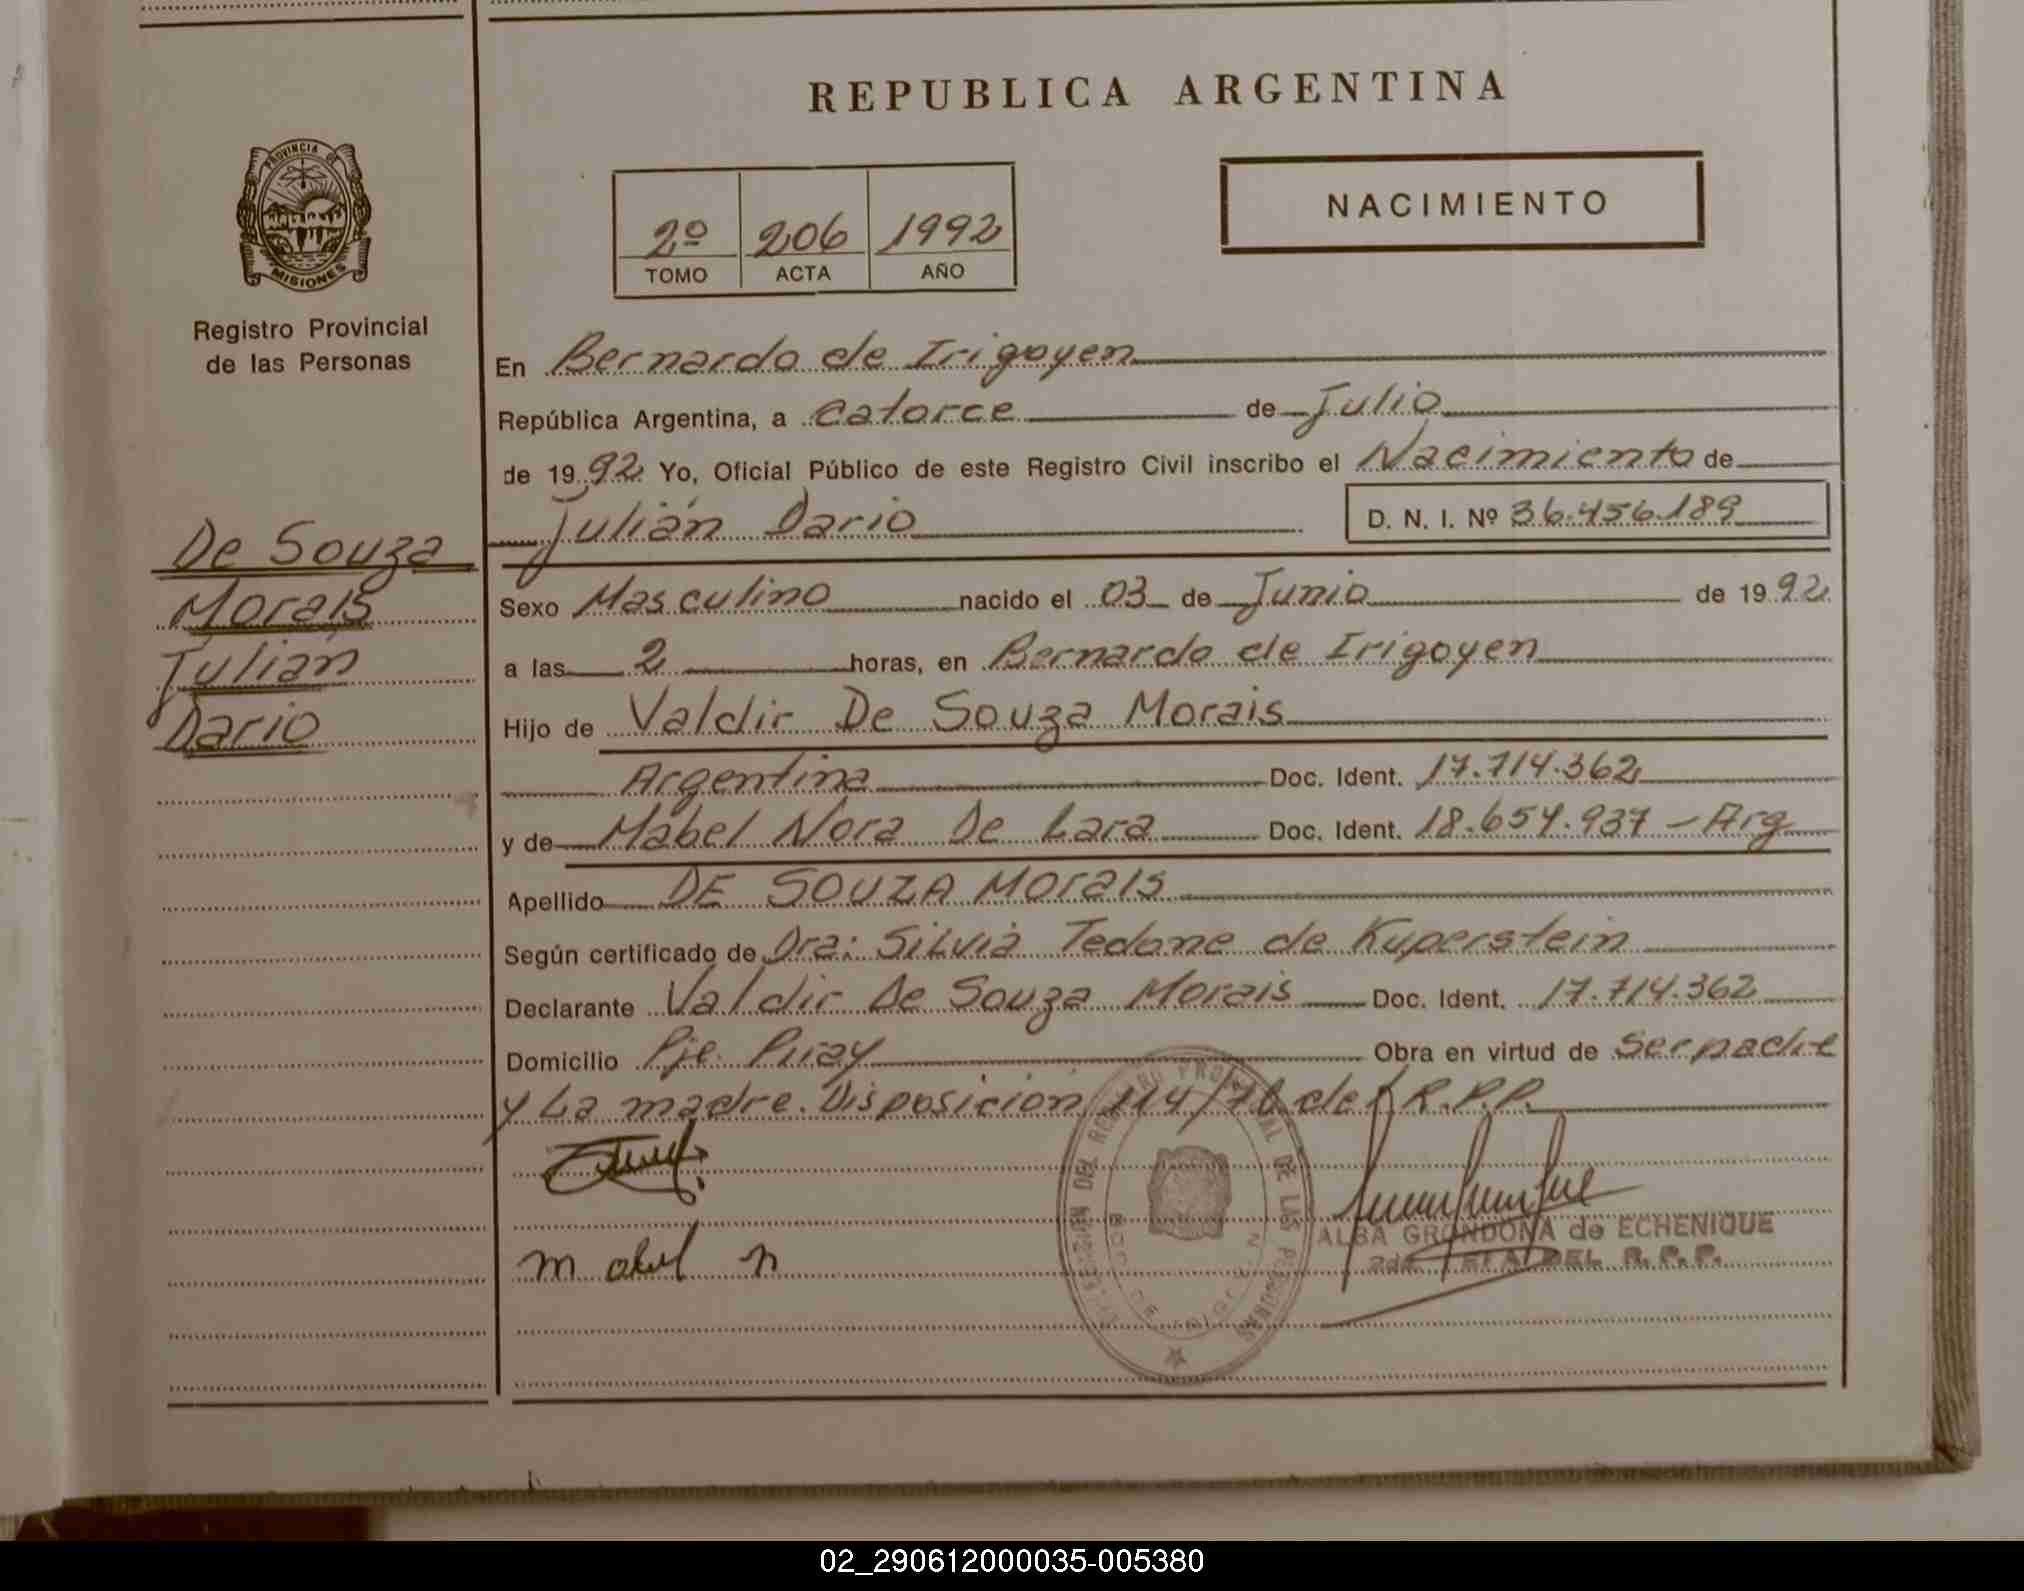 REPUBLICA ARGENTINA
PROVINCIA DE
MISIONES
Registro Provincial
de las Personas
2º 206 1992
TOMO ACTA AÑO
NACIMIENTO
En Bernardo de Irigoyen
República Argentina, a catorce de Julio
de 1992 Yo, Oficial Público de este Registro Civil inscribo el Nacimiento de
Julián Dario D. N. I. Nº 36.456.189
De Souza
Morais
Julián
Dario
Sexo Masculino nacido el 03 de Junio de 1992
a las 2 horas, en Bernardo de Irigoyen
Hijo de Valdir De Souza Morais
Argentina Doc. Ident. 17.714.362
y de Mabel Nora De Lara Doc. Ident. 18.654.937 - Arg
Apellido DE SOUZA Morais
Según certificado de Dra: Silvia Tedone de Kuperstein
Declarante Valdir De Souza Morais Doc. Ident. 17.714.362
Domicilio Pje. Piray Obra en virtud de ser padre
y La madre. Disposición 114/70 del R.P.P.
DEL REGISTRO PROVINCIAL DE LAS PERSONAS
mabel n
ALBA GRONDONA de ECHENIQUE
2da JEFA DEL R. P. P.
02_290612000035-005380